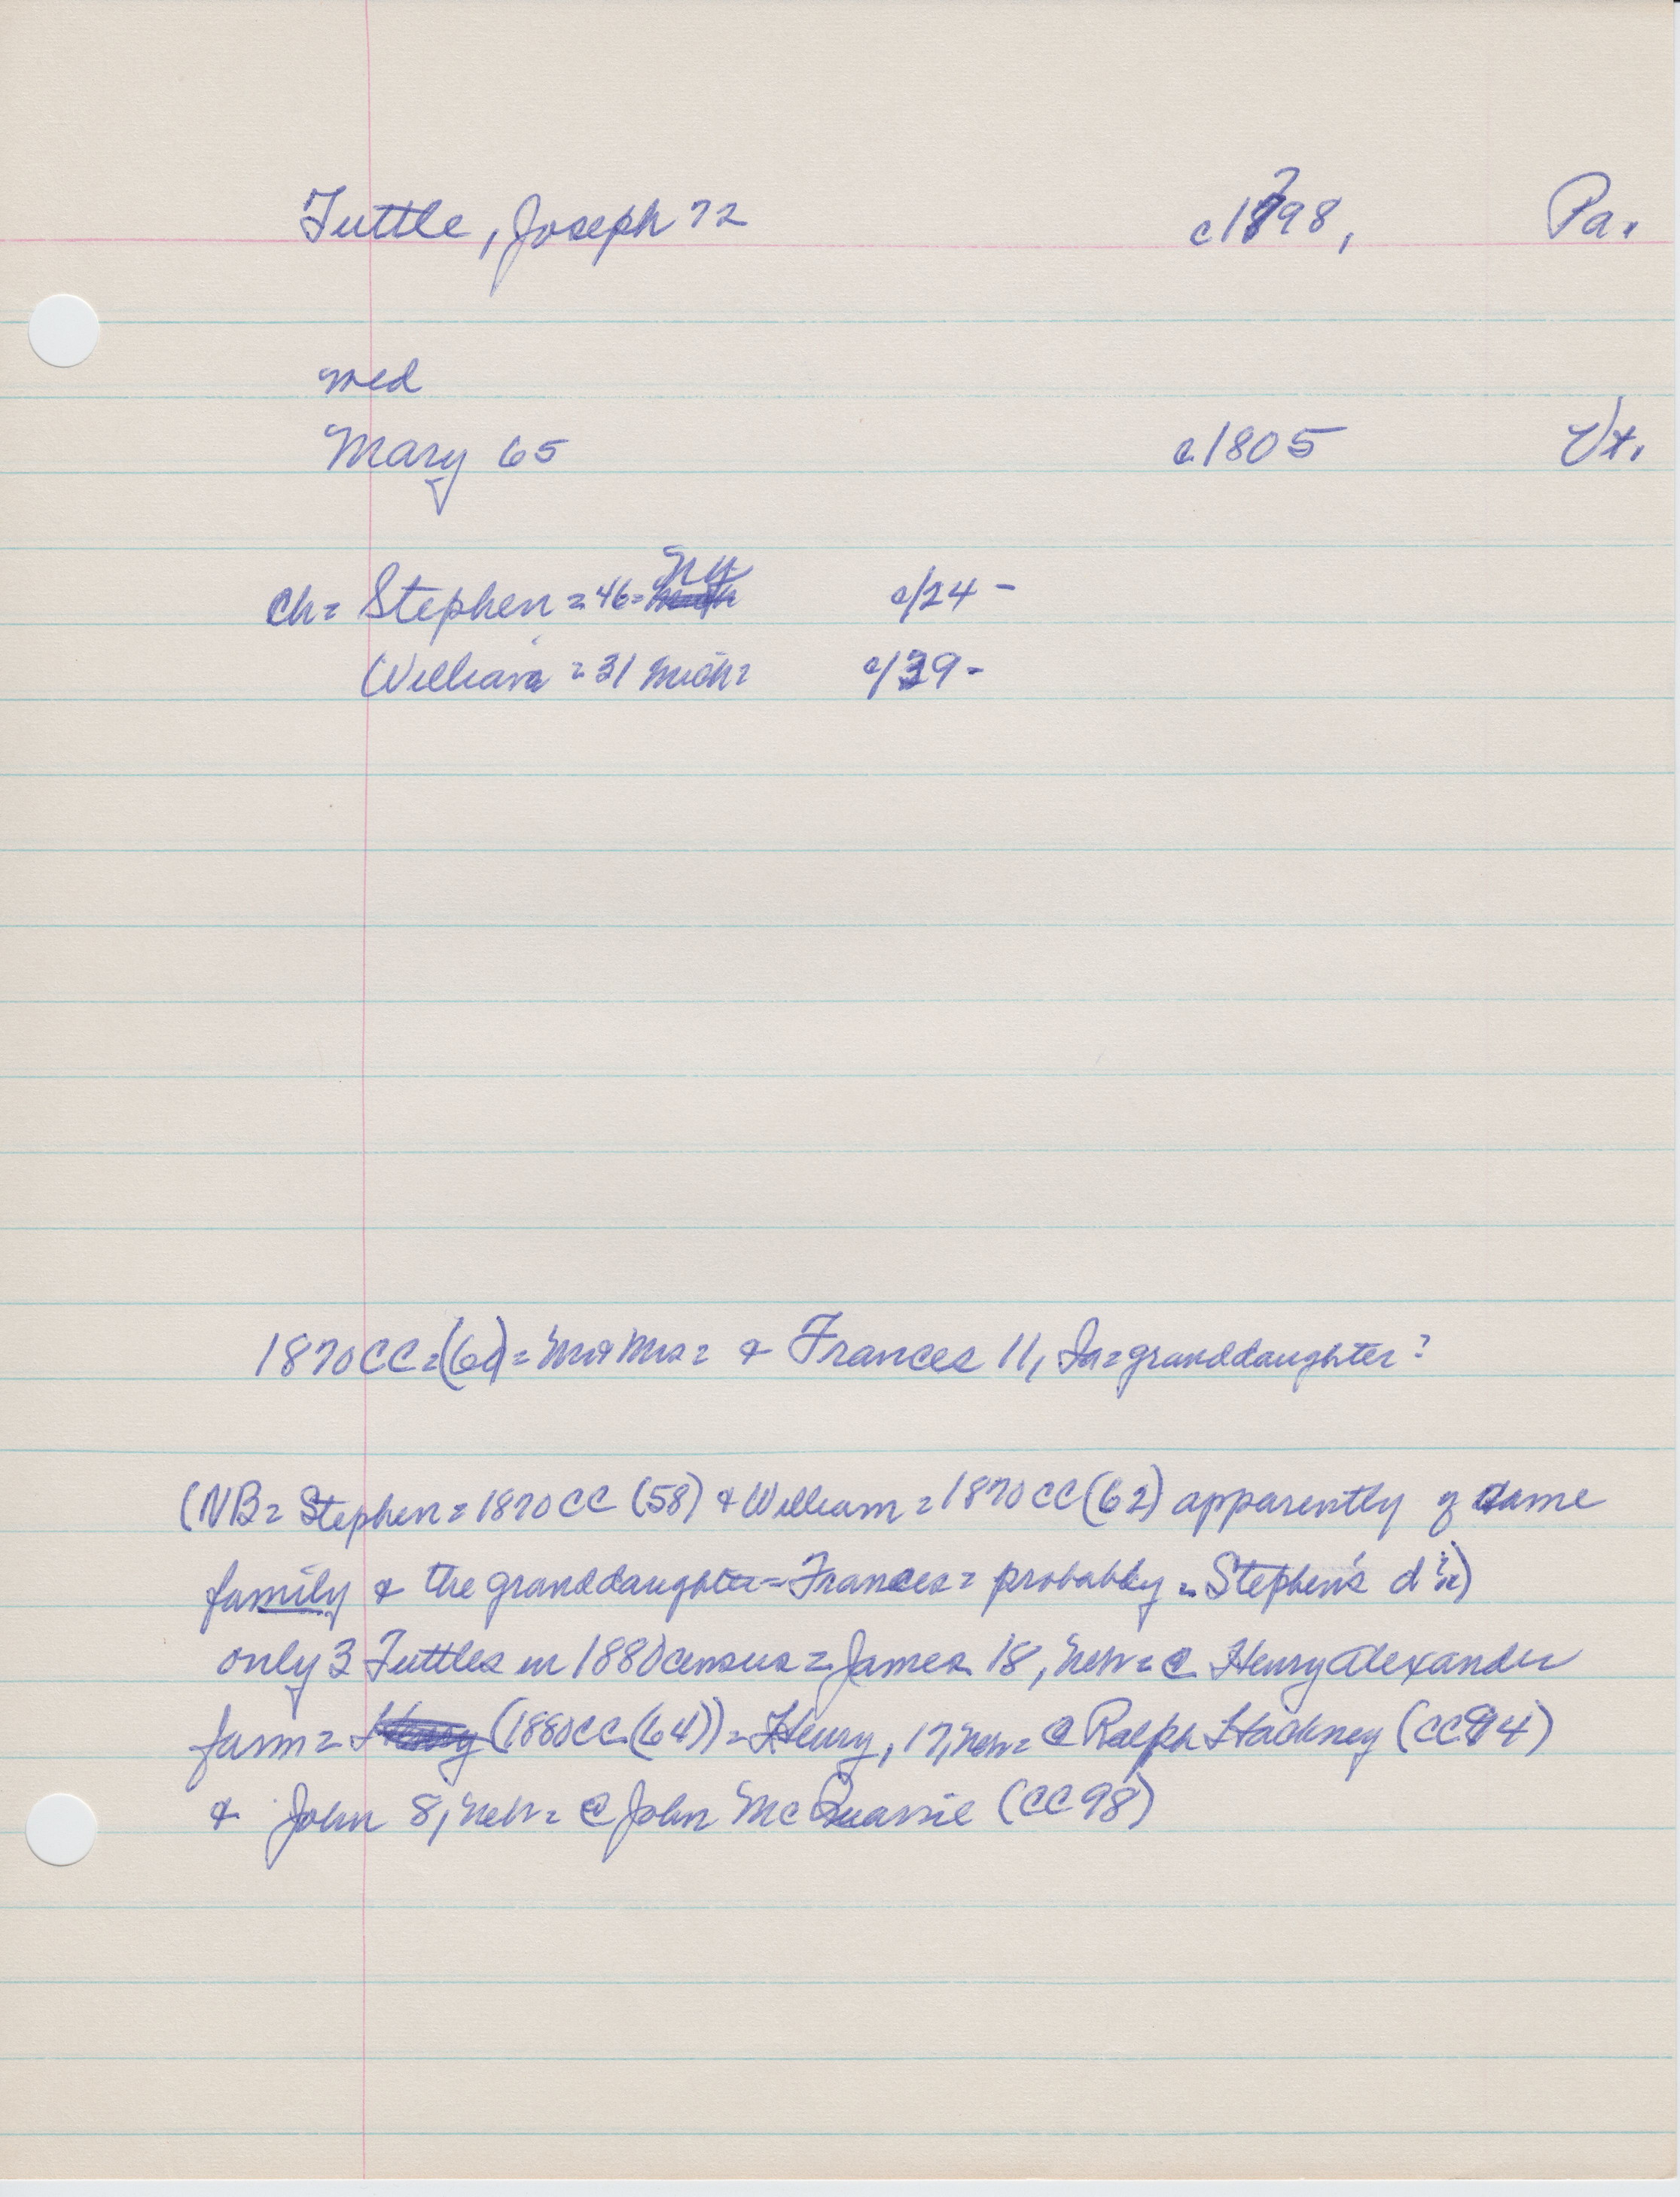 Tuttle, Joseph 72 c1798, Pa.
med
Mary 65 c.1805 Vt.
Ch= Stephen = 46= NY c/24 -
William = 31 Mich= c/39-
1870CC=(60)= Mr & Mrs = & Frances 11, Ia=granddaughter?
(NB= Stephen = 1870CC (58) & William = 1870CC (62) apparently of same
family & the granddaughter = Frances = probably = Stephen's d
only 3 Tuttles in 1880 census = James 18, Neb= @ Henry Alexander
farm = (1880CC.(64)) = Henry, 17, Neb= @ Ralph Hackney (CC94)
& John 8, Neb= @ John McQuarrie (CC98)